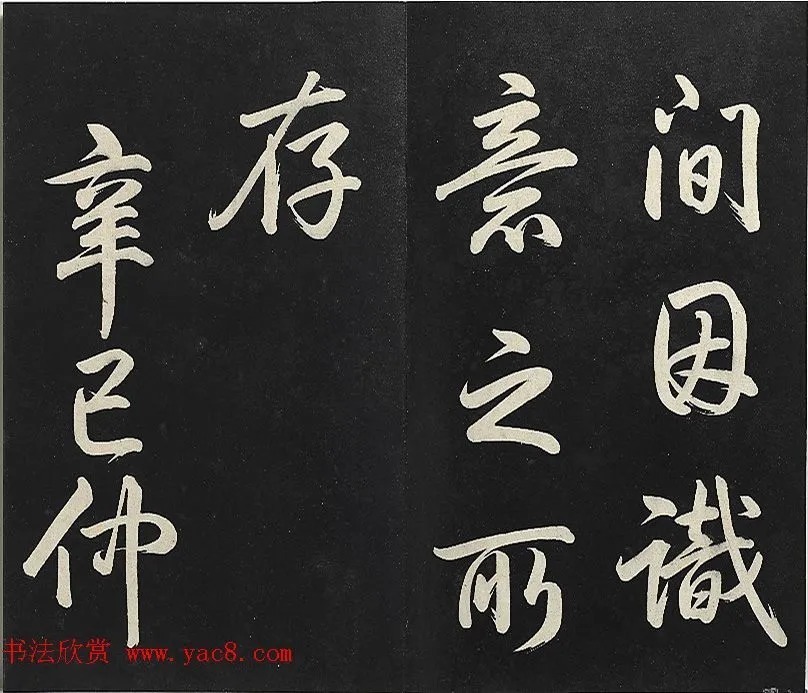 间因识
意之所
存
辛巳仲
书法欣赏 www.yac8.com